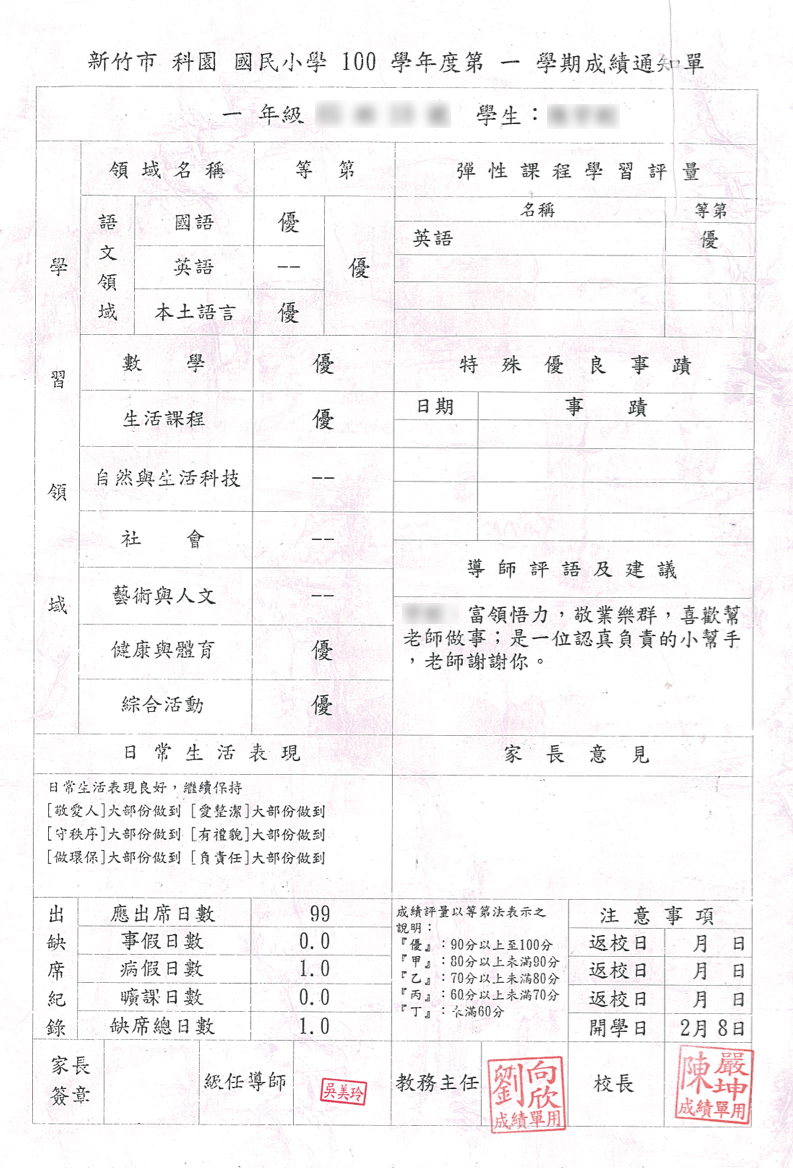 新竹市 科園 國民小學 100 學年度第 一 學期成績通知單
一 年級 學生：
學習領域
領域名稱 等第
語文領域
國語 優
英語 --
本土語言 優
優
數學 優
生活課程 優
自然與生活科技 --
社會 --
藝術與人文 --
健康與體育 優
綜合活動 優
彈性課程學習評量
名稱 等第
英語 優
特殊優良事蹟
日期 事蹟
導師評語及建議
富領悟力，敬業樂群，喜歡幫
老師做事；是一位認真負責的小幫手
，老師謝謝你。
日常生活表現
日常生活表現良好，繼續保持
[敬愛人]大部份做到 [愛整潔]大部份做到
[守秩序]大部份做到 [有禮貌]大部份做到
[做環保]大部份做到 [負責任]大部份做到
家長意見
出缺席紀錄
應出席日數 99
事假日數 0.0
病假日數 1.0
曠課日數 0.0
缺席總日數 1.0
成績評量以等第法表示之
說明：
『優』：90分以上至100分
『甲』：80分以上未滿90分
『乙』：70分以上未滿80分
『丙』：60分以上未滿70分
『丁』：未滿60分
注意事項
返校日 月 日
返校日 月 日
返校日 月 日
開學日 2月 8日
家長
簽章
級任導師 吳美玲
教務主任
劉向欣
成績單用
校長
陳嚴坤
成績單用